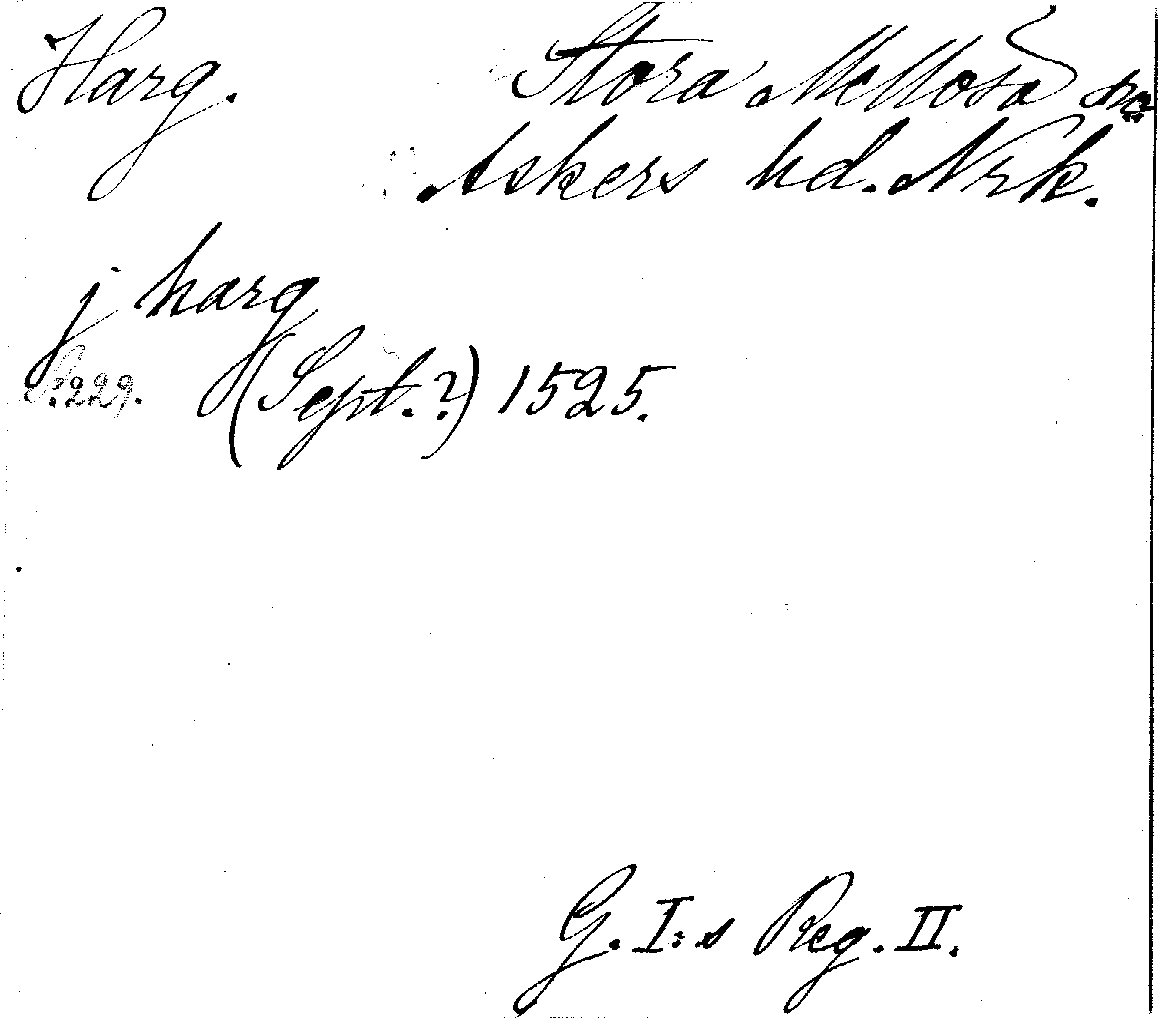 Harg. Stora Mellösa sn
Askers hd. Nrk.
j harg
S. 229. (Sept.?) 1525.
G. I:s Reg. II.